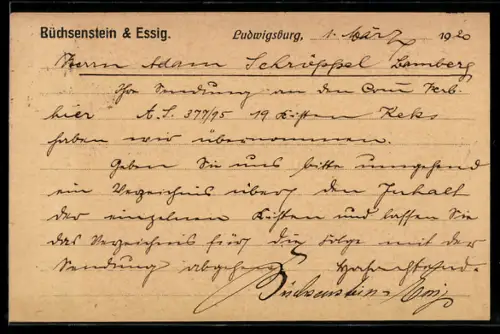 Büchsenstein & Essig.
Ludwigsburg, 1. März 1920
Herrn Adam Schröppel Bamberg
Ihre Sendung an den Com Verb
hier A. S. 377/95 19 Kisten Keks
haben wir übernommen.
Geben Sie uns bitte umgehend
ein Verzeichnis über den Inhalt
der einzelnen Kisten und lassen Sie
das Verzeichnis für die Folge mit der
Sendung abgehen. Hochachtend.
Büchsenstein & Essig